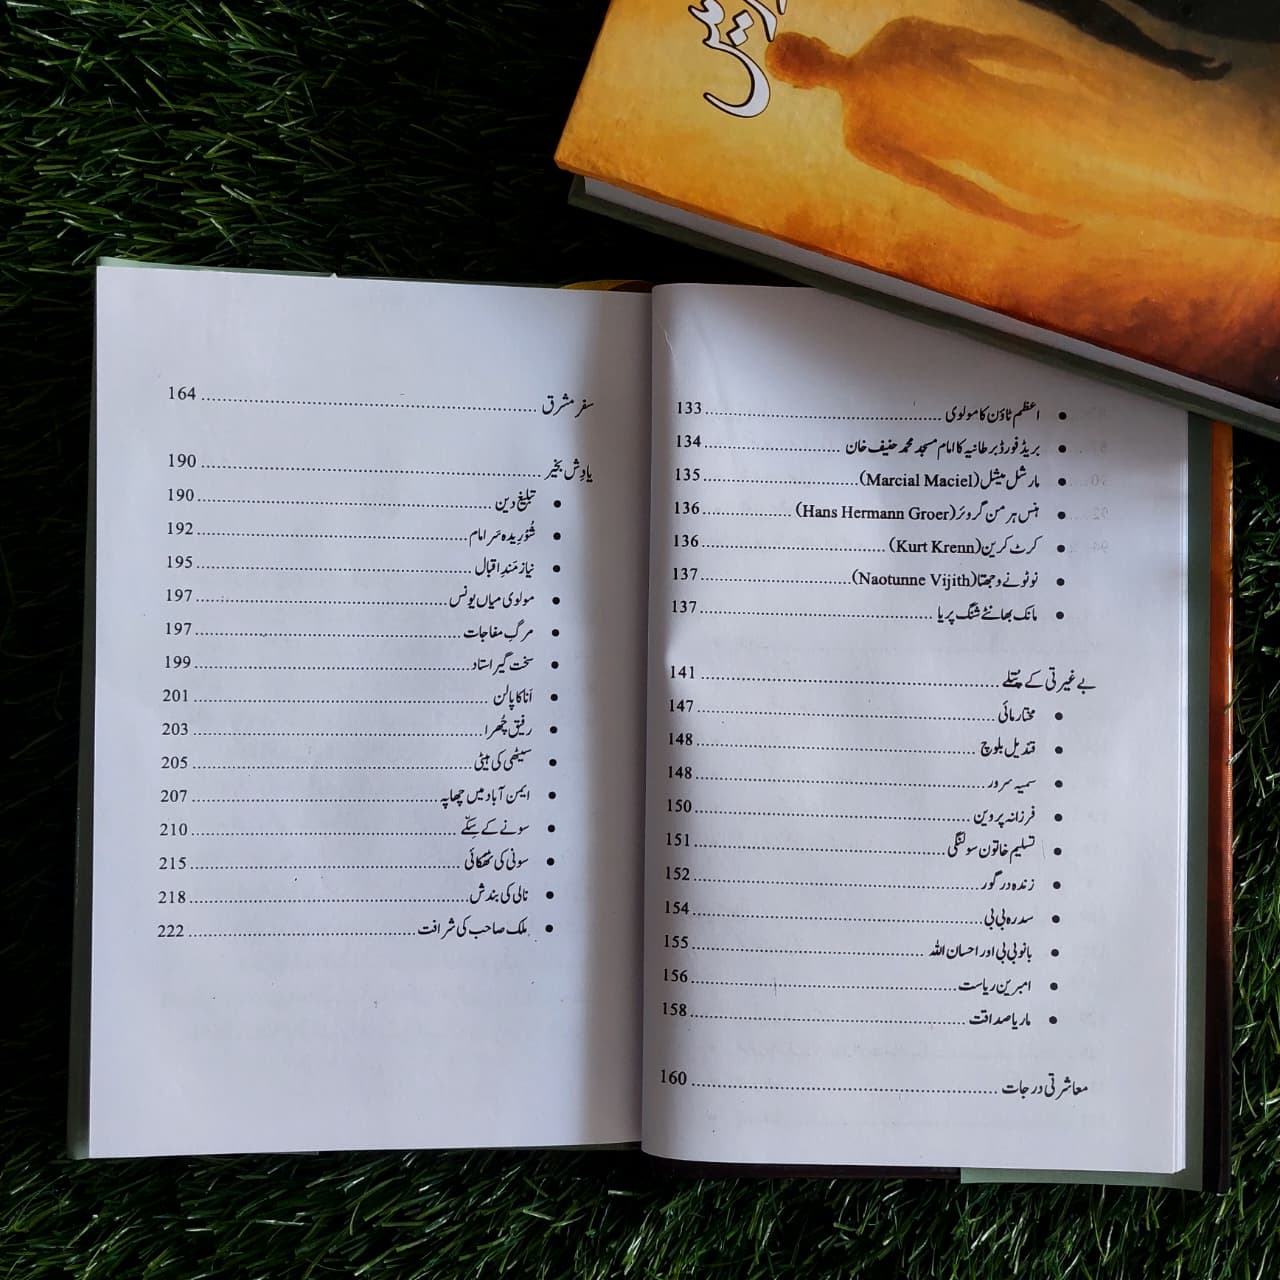 اعظم ٹاؤن کا مولوی ........ 133
بریڈ فورڈ برطانیہ کا امام مسجد محمد حنیف خان ........ 134
مارشل میشل (Marcial Maciel) ........ 135
ہنس ہرمن گروئر (Hans Hermann Groer) ........ 136
کرٹ کرین (Kurt Krenn) ........ 136
نوٹونے وجھتا (Naotunne Vijith) ........ 137
مانک بھانٹے شنگ پریا ........ 137
بے غیرتی کے پُتلے ........ 141
مختار مائی ........ 147
قندیل بلوچ ........ 148
سمیہ سرور ........ 148
فرزانہ پروین ........ 150
تسلیم خاتون سولنگی ........ 151
زندہ در گور ........ 152
سدرہ بی بی ........ 154
بانو بی بی اور احسان اللہ ........ 155
امبرین ریاست ........ 156
ماریا صداقت ........ 158
معاشرتی درجات ........ 160
سفر مشرق ........ 164
یادِش بخیر ........ 190
تبلیغ دین ........ 190
شُوریدہ سَر امام ........ 192
نیاز مَندِ اقبال ........ 195
مولوی میاں یونس ........ 197
مرگِ مفاجات ........ 197
سخت گیر استاد ........ 199
اَنا کا پالن ........ 201
رفیق چُھرا ........ 203
سیٹھی کی بیٹی ........ 205
ایمن آباد میں چھاپہ ........ 207
سونے کے سِکّے ........ 210
سونی کی ٹھکائی ........ 215
نالی کی بندش ........ 218
ملک صاحب کی شرافت ........ 222